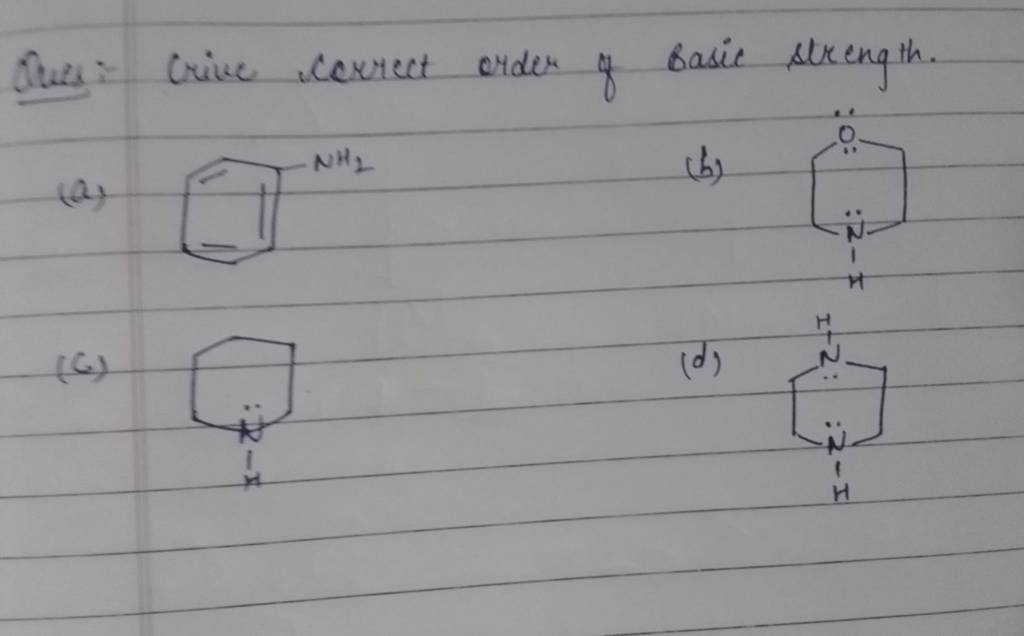 Ques:- Give correct order of Basic strength.
(a) NH2 (b) O N H
(c) N H (d) H N N H